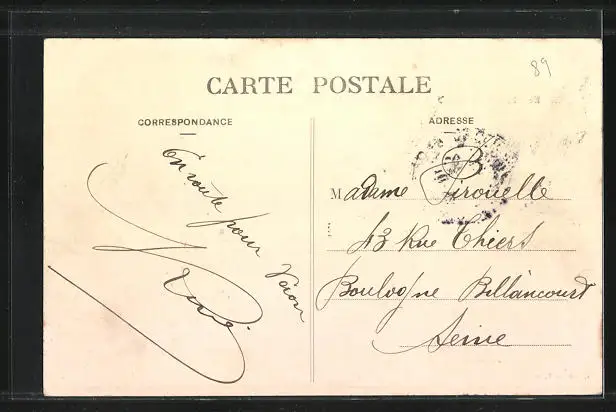 89
CARTE POSTALE
CORRESPONDANCE
ADRESSE
En route pour
Madame Pirouelle
43 Rue Thiers
Boulogne Billancourt
Seine